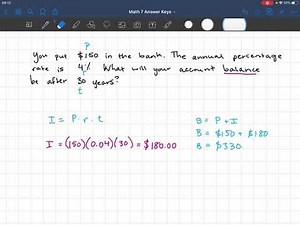 09:12
Math 7 Answer Keys
P
You put $150 in the bank. The annual percentage
rate is 4%. What will your account balance
be after 30 years?
t
I = P . r . t
B = P + I
B = $150 + $180
I = (150)(0.04)(30) = $180.00
B = $330